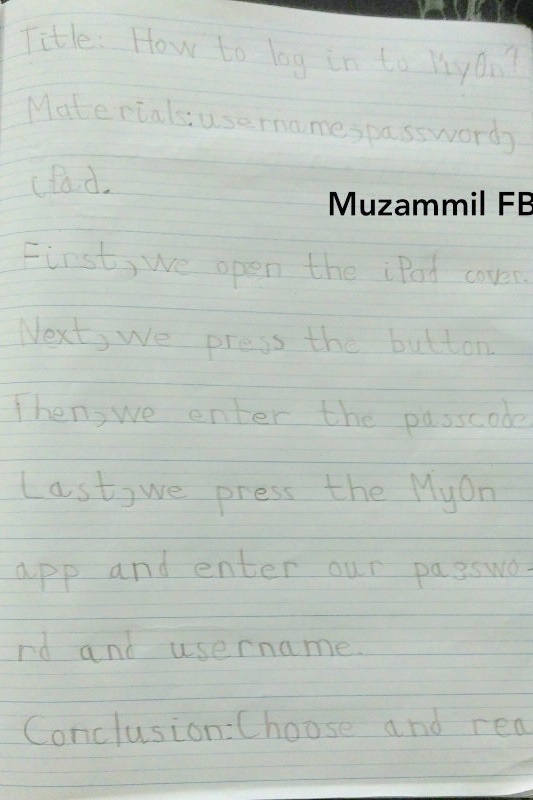 Title: How to log in to MyOn?
Materials:username,password,
iPad.
Muzammil FB
First,we open the iPad cover.
Next,we press the button.
Then,we enter the passcode
Last,we press the MyOn
app and enter our passwo-
rd and username.
Conclusion:Choose and rea